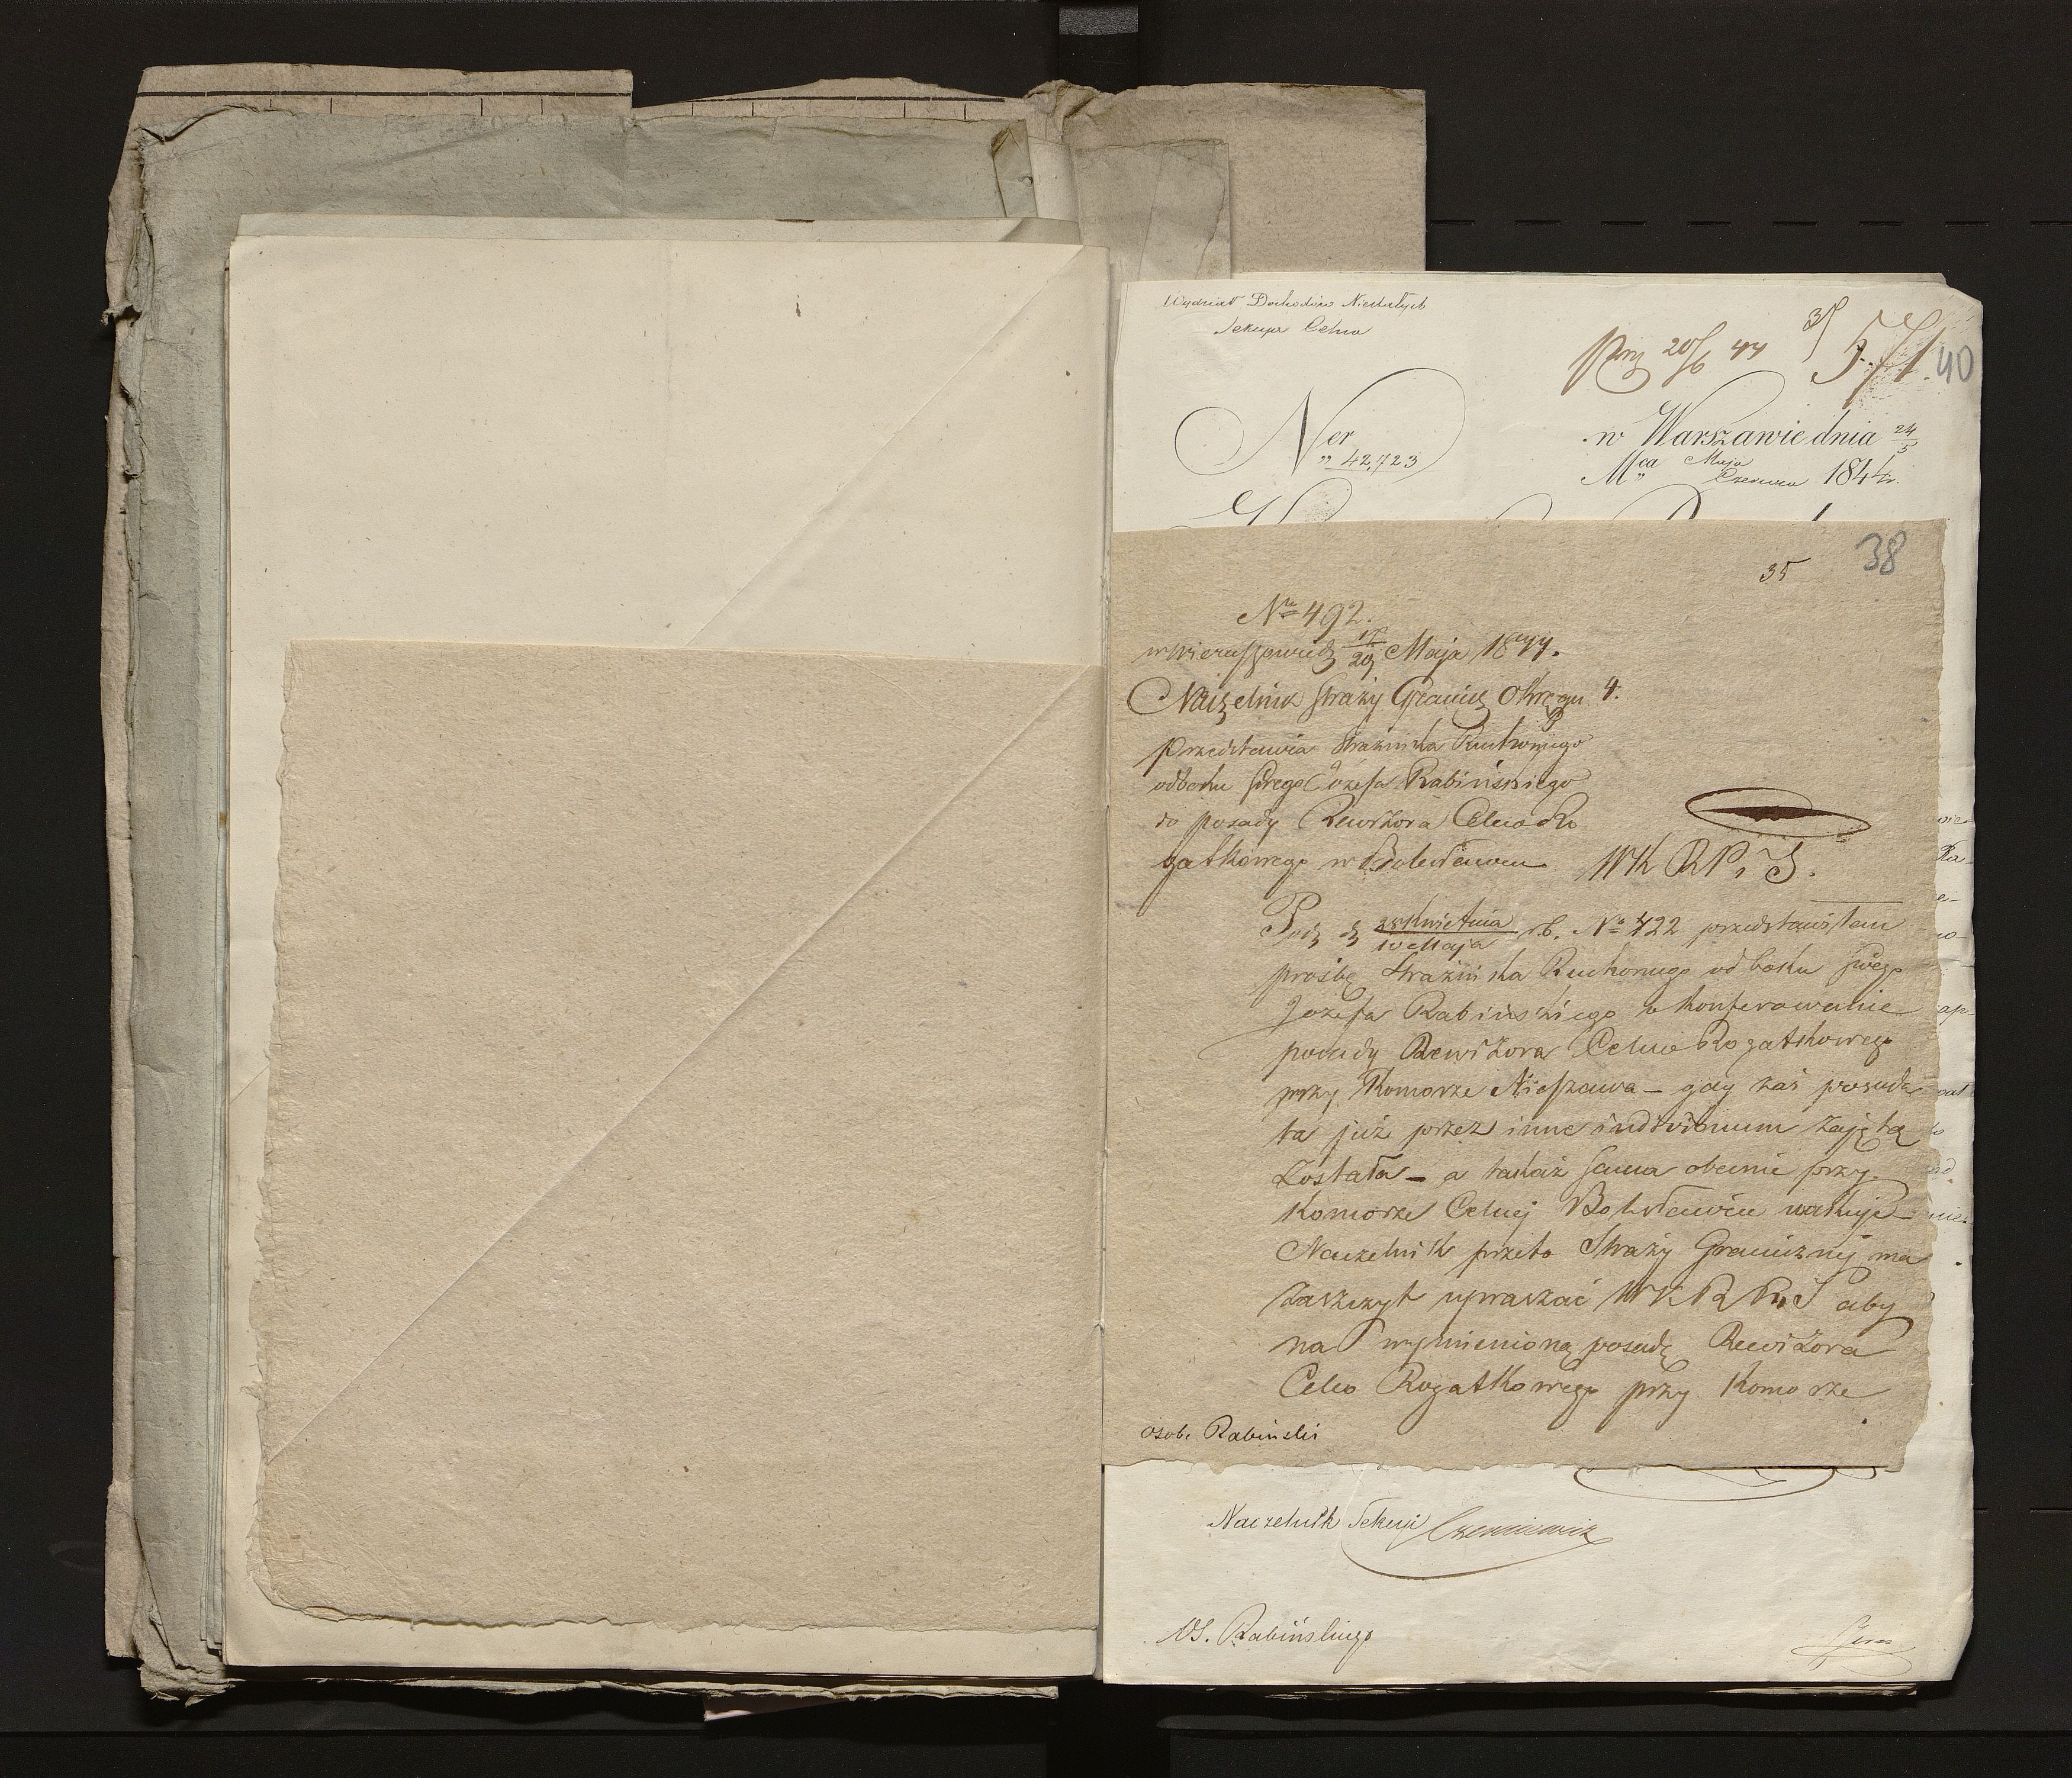 Wydział Dochodów Niestałych
Sekcya Celna
37
prz 20/6 44
571.
40
Ner
„ 42,723
w Warszawie dnia 24/5
Mca Maja
Czerwca 1844 r.
38
35
No 492.
w Wieruszowie d 17/29 Maja 1844.
Naczelnik Straży Granicz Okręgu 4.
Przedstawia Strażnika Ruchomego
od boku swego Józefa Rabińskiego
do posady Rewizora Celno Ro
gatkowego w Bolesławcu
W K R P i S.
Pod d 28 Kwietnia / 10 Maja r.b. No 422 przedstawiłem
prośbę Strażnika Ruchomego od boku swego
Józefa Rabińskiego o konferowanie
posady Rewizora Celno Rogatkowego
przy Komorze Nieszawa – gdy zaś posada
ta już przez inne individuum zajętą
została – a takaż sama obecnie przy
Komorze Celnej Bolesławiec wakuje –
Naczelnik przeto Straży Granicznej ma
zaszczyt upraszać W K R P i S aby
na wymienioną posadę Rewizora
Celno Rogatkowego przy Komorze
osob. Rabiński
Naczelnik Sekcji
OS. Rabińskiego